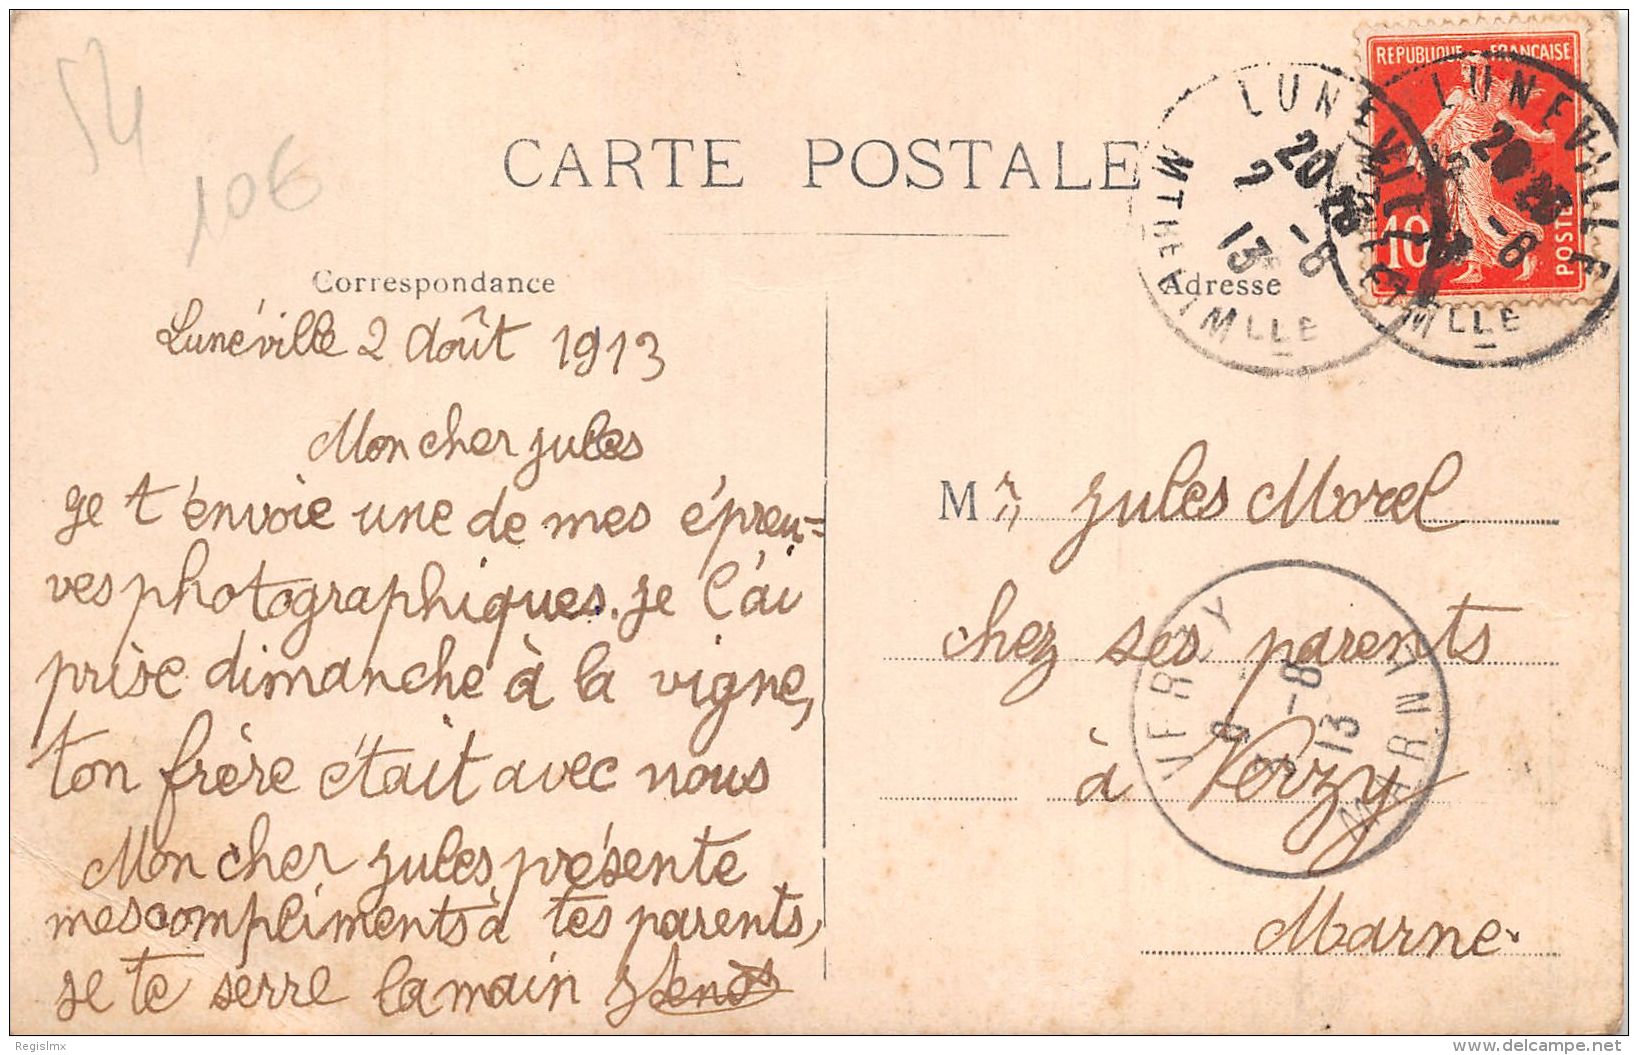 54
10€
CARTE POSTALE
REPUBLIQUE FRANÇAISE
10
POSTES
LUNEVILLE
20 25
2 -8
13
MTHE ET MLLE
LUNEVILLE
20 25
-8
MLLE
Correspondance
Adresse
Lunéville 2 Août 1913
Mon cher Jules
Je t'envoie une de mes épreu=
ves photographiques. Je l'ai
prise dimanche à la vigne,
ton frère était avec nous
Mon cher Jules présente
mes compliments à tes parents,
Je te serre la main
Mr Jules Morel
chez ses parents
à Verzy
Marne
VERZY
-8
13
MARNE
Regislmx
www.delcampe.net